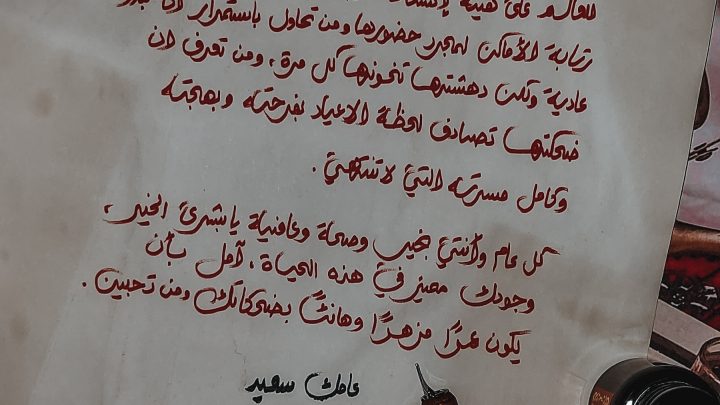 للعالم على هيئة
رتابة الأماكن لمجرد حضورها ومن تحاول باستمرار ان تبدو
عادية ولكن دهشتها تخونها كل مرة، ومن تعرف ان
ضحكتها تصادف لحظة الاعياد بفرحته وبهجته
وكامل مسرته التي لا تنتهي.
كل عام وأنتي بخير وصحة وعافية يا بشرى الخير،
وجودك مميز في هذه الحياة، آمل بأن
يكون عمرًا مزهرًا وهانئًا بضحكاتك ومن تحبين.
عامك سعيد